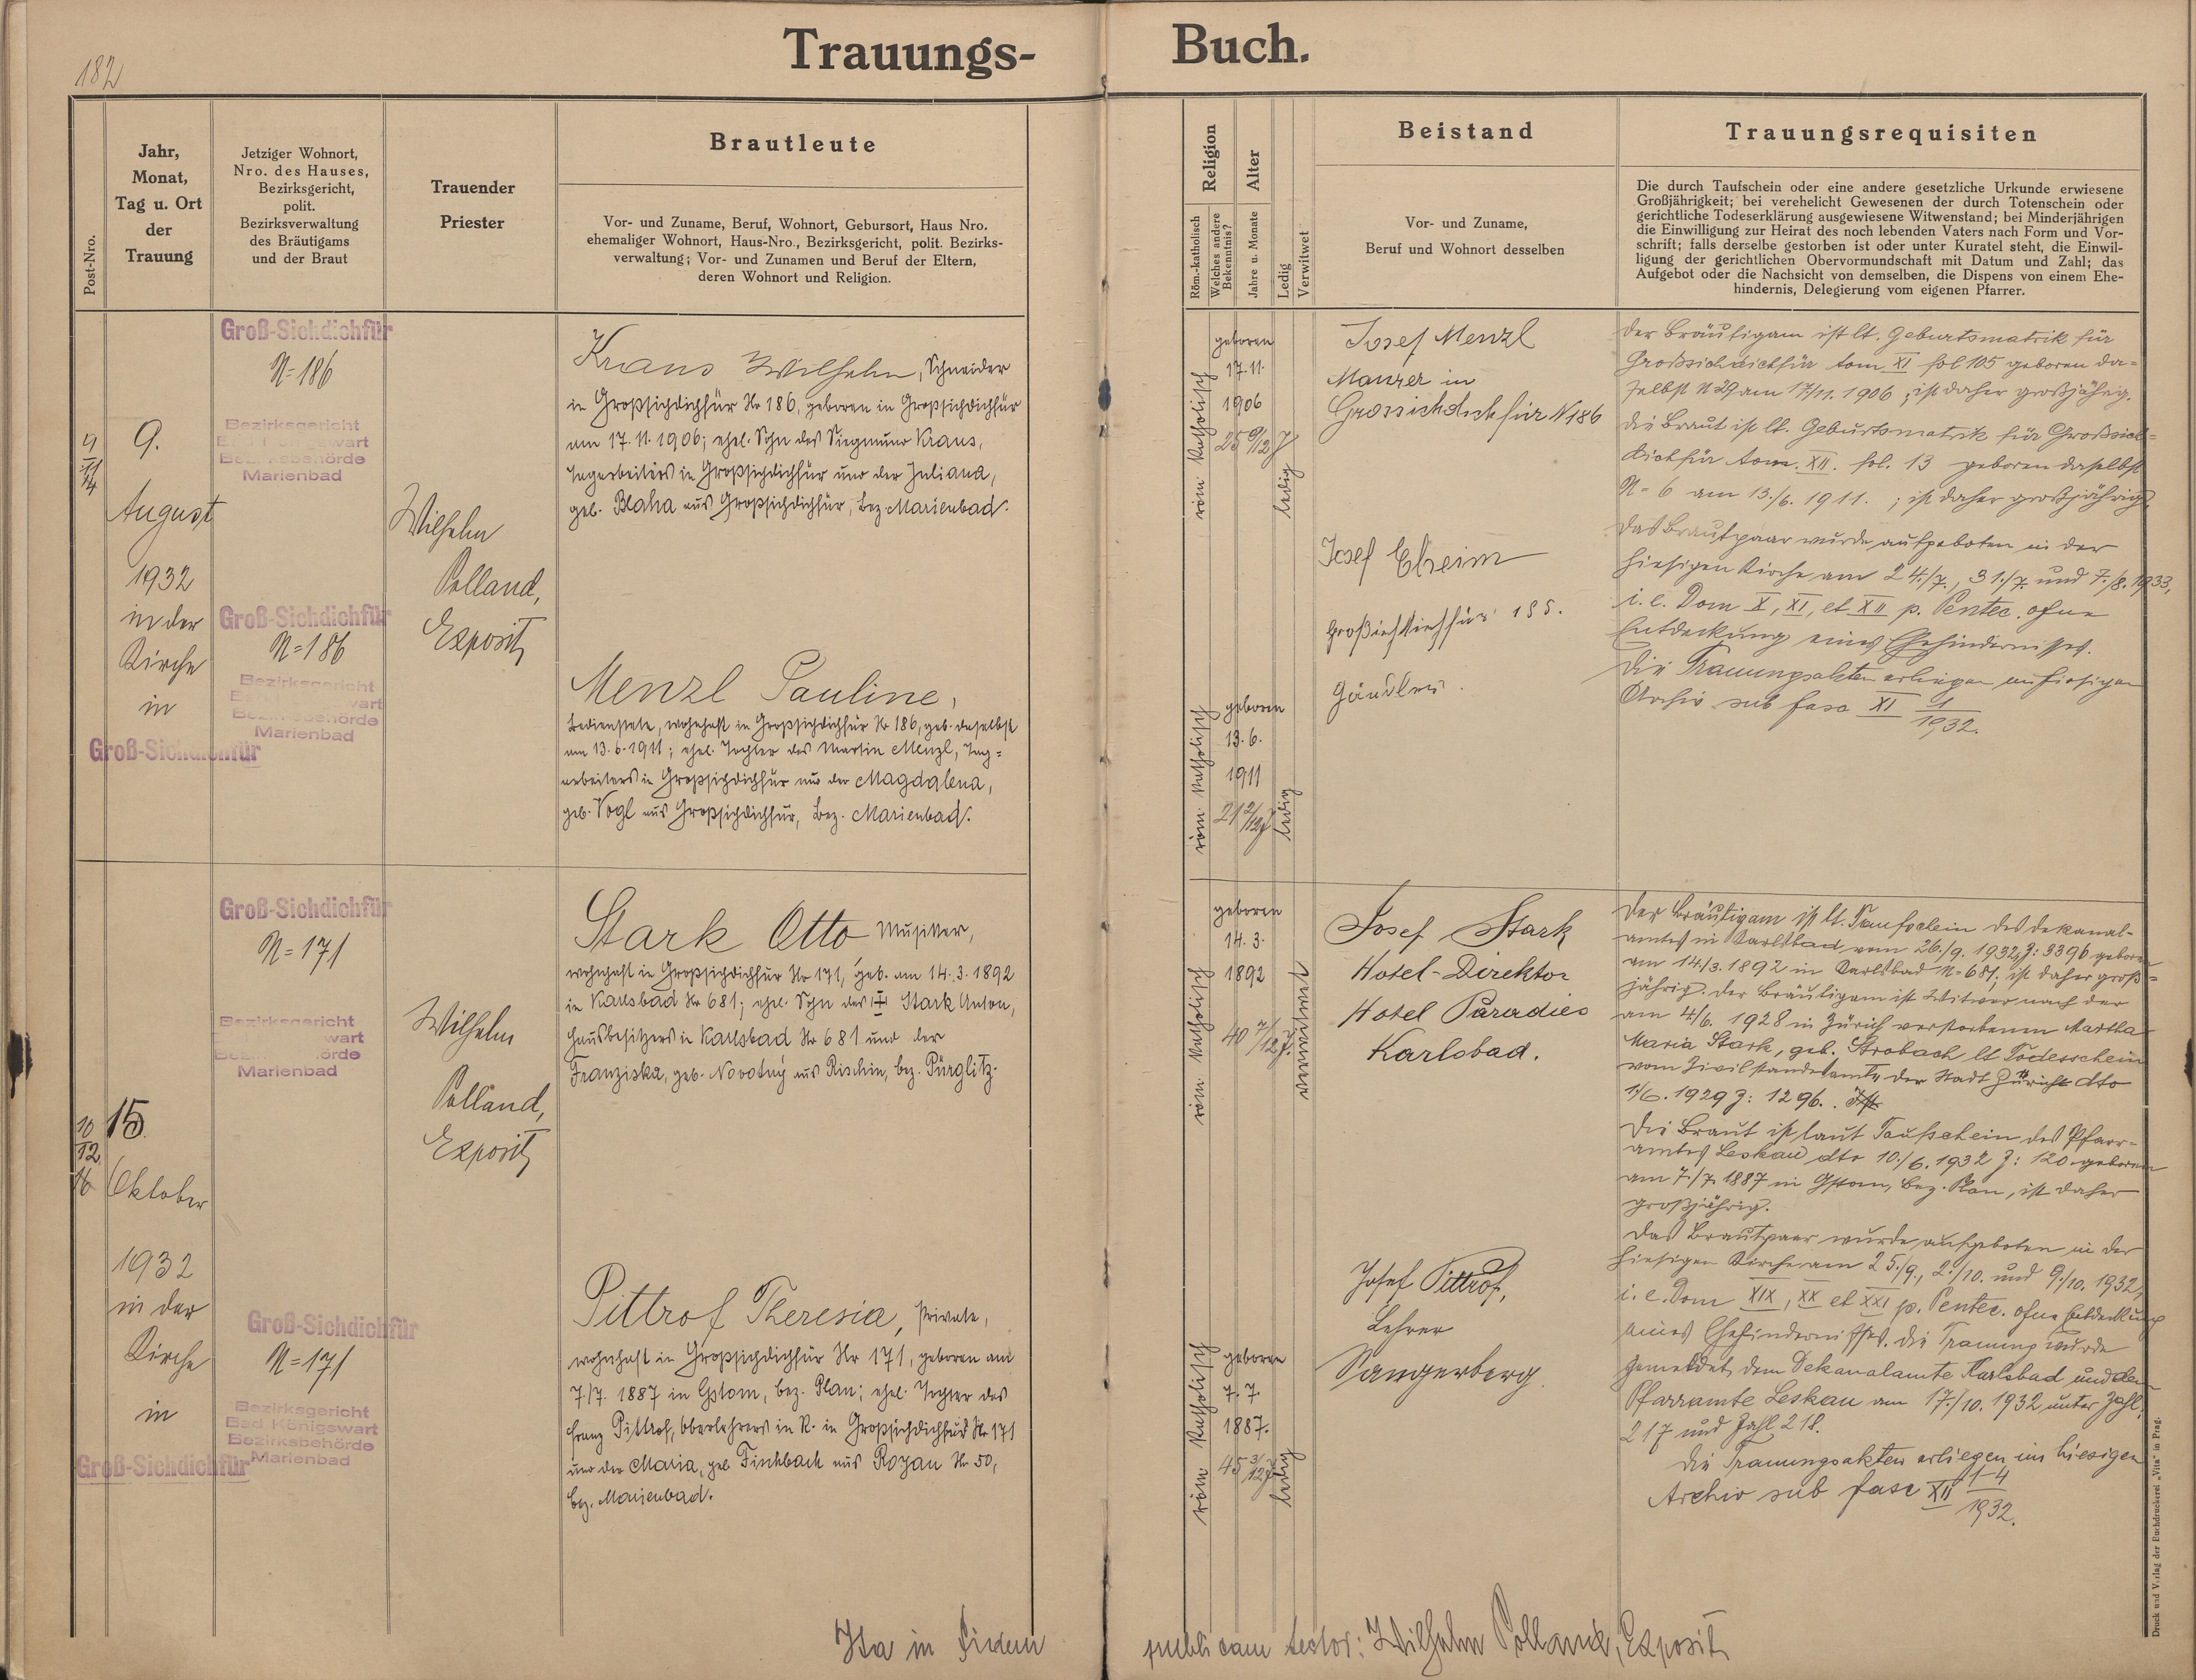 182
Trauungs-
Buch.
Post-Nro.
Jahr,
Monat,
Tag u. Ort
der
Trauung
Jetziger Wohnort,
Nro. des Hauses,
Bezirksgericht,
polit.
Bezirksverwaltung
des Bräutigams
und der Braut
Trauender
Priester
Brautleute
Vor- und Zuname, Beruf, Wohnort, Gebursort, Haus Nro.
ehemaliger Wohnort, Haus-Nro., Bezirksgericht, polit. Bezirks-
verwaltung; Vor- und Zunamen und Beruf der Eltern,
deren Wohnort und Religion.
Religion
Röm.-katholisch
Welches andere
Bekenntnis?
Alter
Jahre u. Monate
Ledig
Verwitwet
Beistand
Vor- und Zuname,
Beruf und Wohnort desselben
Trauungsrequisiten
Die durch Taufschein oder eine andere gesetzliche Urkunde erwiesene
Großjährigkeit; bei verehelicht Gewesenen der durch Totenschein oder
gerichtliche Todeserklärung ausgewiesene Witwenstand; bei Minderjährigen
die Einwilligung zur Heirat des noch lebenden Vaters nach Form und Vor-
schrift; falls derselbe gestorben ist oder unter Kuratel steht, die Einwil-
ligung der gerichtlichen Obervormundschaft mit Datum und Zahl; das
Aufgebot oder die Nachsicht von demselben, die Dispens von einem Ehe-
hindernis, Delegierung vom eigenen Pfarrer.
9.
August
1932
in der
Kirche
in
Groß-Sichdichfür
Groß-Sichdichfür
N=186
Bezirksgericht
Bezirksbehörde
Marienbad
Groß-Sichdichfür
N=186
Bezirksgericht
Bezirksbehörde
Marienbad
Wilhelm
Polland,
Exposit
Kraus Wilhelm, Schneider
in Großsichdichfür Nr 186, geboren in Großsichdichfür
am 17.11.1906; ehel. Sohn des Siegmund Kraus,
Tagarbeiters in Großsichdichfür und der Juliana,
geb. Blaha aus Großsichdichfür, Bez. Marienbad.
Menzl Pauline,
Bedienstete, wohnhaft in Großsichdichfür Nr 186, geb. daselbst
am 13.6.1911; ehel. Tochter des Martin Menzl, Tag=
arbeiters in Großsichdichfür und der Magdalena,
geb. Vogl aus Großsichdichfür, Bez. Marienbad.
röm. katholisch
geboren
17.11.
1906
25 9/12 J
ledig
röm. katholisch
geboren
13.6.
1911
21 2/12 J
ledig
Josef Menzl
Maurer in
Grossichdichfür N 186
Josef
Großsichdichfür
Händler.
Der Bräutigam ist lt. Geburtsmatrik für
Großsichdichfür tom XI fol 105 geboren da-
selbst N 29 am 17/11. 1906; ist daher großjährig.
Die Braut ist lt. Geburtsmatrik für Großsich=
dichfür tom. XII. fol. 13 geboren daselbst
N=6 am 13./6. 1911.; ist daher großjährig.
Das Brautpaar wurde aufgeboten in der
hiesigen Kirche am 24./7., 31./7. und 7./8. 1933,
i. e. Dom X, XI, et XII p. Pentec. ohne
Entdeckung eines Ehehindernisses.
Die Trauungsakten erliegen im hiesigen
Archiv sub fasc XI 1/1932.
15.
Oktober
1932
in der
Kirche
in
Groß-Sichdichfür
Groß-Sichdichfür
N=171
Bezirksgericht
Marienbad
Groß-Sichdichfür
N=171
Bezirksgericht
Bad Königswart
Bezirksbehörde
Marienbad
Wilhelm
Polland,
Exposit
Stark Otto Musiker,
wohnhaft in Großsichdichfür Nr 171, geb. am 14.3.1892
in Karlsbad Nr 681; ehel. Sohn des Stark Anton,
Hausbesitzers in Karlsbad Nr 681 und der
Franziska, geb. Novotný aus Rischin, bez. Pürglitz.
Pittrof Theresia, Private,
wohnhaft in Großsichdichfür Nr 171, geboren am
7./7. 1887 in Gstom, bez. Plan; ehel. Tochter des
Franz Pittrof, Oberlehrers in R. in Großsichdichfür Nr 171
und der Maria, geb. Fischbach aus Royau Nr 50,
bez. Marienbad.
röm. katholisch
geboren
14.3.
1892
40 7/12 J.
verwitwet
röm. katholisch
geboren
7.7.
1887.
45 3/12 J
ledig
Josef Stark
Hotel-Direktor
Hotel Paradies
Karlsbad.
Josef Pittrof,
Lehrer
Sangerberg.
Der Bräutigam ist lt. Taufschein des Dekanal-
amtes in Karlsbad vom 26./9. 1932 Z: 3396 geboren
am 14/3. 1892 in Karlsbad N=681; ist daher groß=
jährig. Der Bräutigam ist Witwer nach der
am 4/6. 1928 in Zürich verstorbenen Martha
Maria Stark, geb. Strobach lt Todesschein
vom Zivilstandesamte der Stadt Zürich dto
1/6. 1929 Z: 1296.
Die Braut ist laut Taufschein des Pfarr-
amtes Leskau dto 10./6. 1932 Z: 120 geboren
am 7./7. 1887 in Gstom, bez. Plan, ist daher
großjährig.
Das Brautpaar wurde aufgeboten in der
hiesigen Kirche am 25./9., 2./10. und 9./10. 1932,
i. e. Dom XIX, XX et XXI p. Pentec. ohne Entdeckung
eines Ehehindernisses. Die Trauung wurde
gemeldet dem Dekanalamte Karlsbad und dem
Pfarramte Leskau am 17./10. 1932 unter Zahl:
217 und Zahl 218.
Die Trauungsakten erliegen im hiesigen
Archiv sub fasc XII 1-4/1932.
Ita in fidem
publicam testor: Wilhelm Polland, Exposit
Druck und Verlag der Buchdruckerei „Vita“ in Prag.